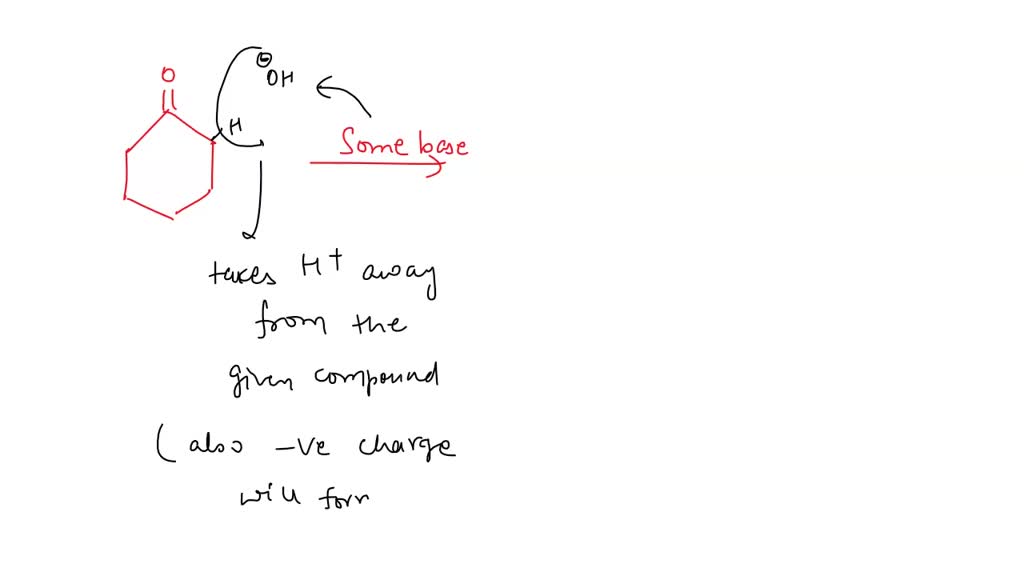 O
⊖
OH
H
Some base
takes H+ away
from the
given compound
( also -ve charge
will form